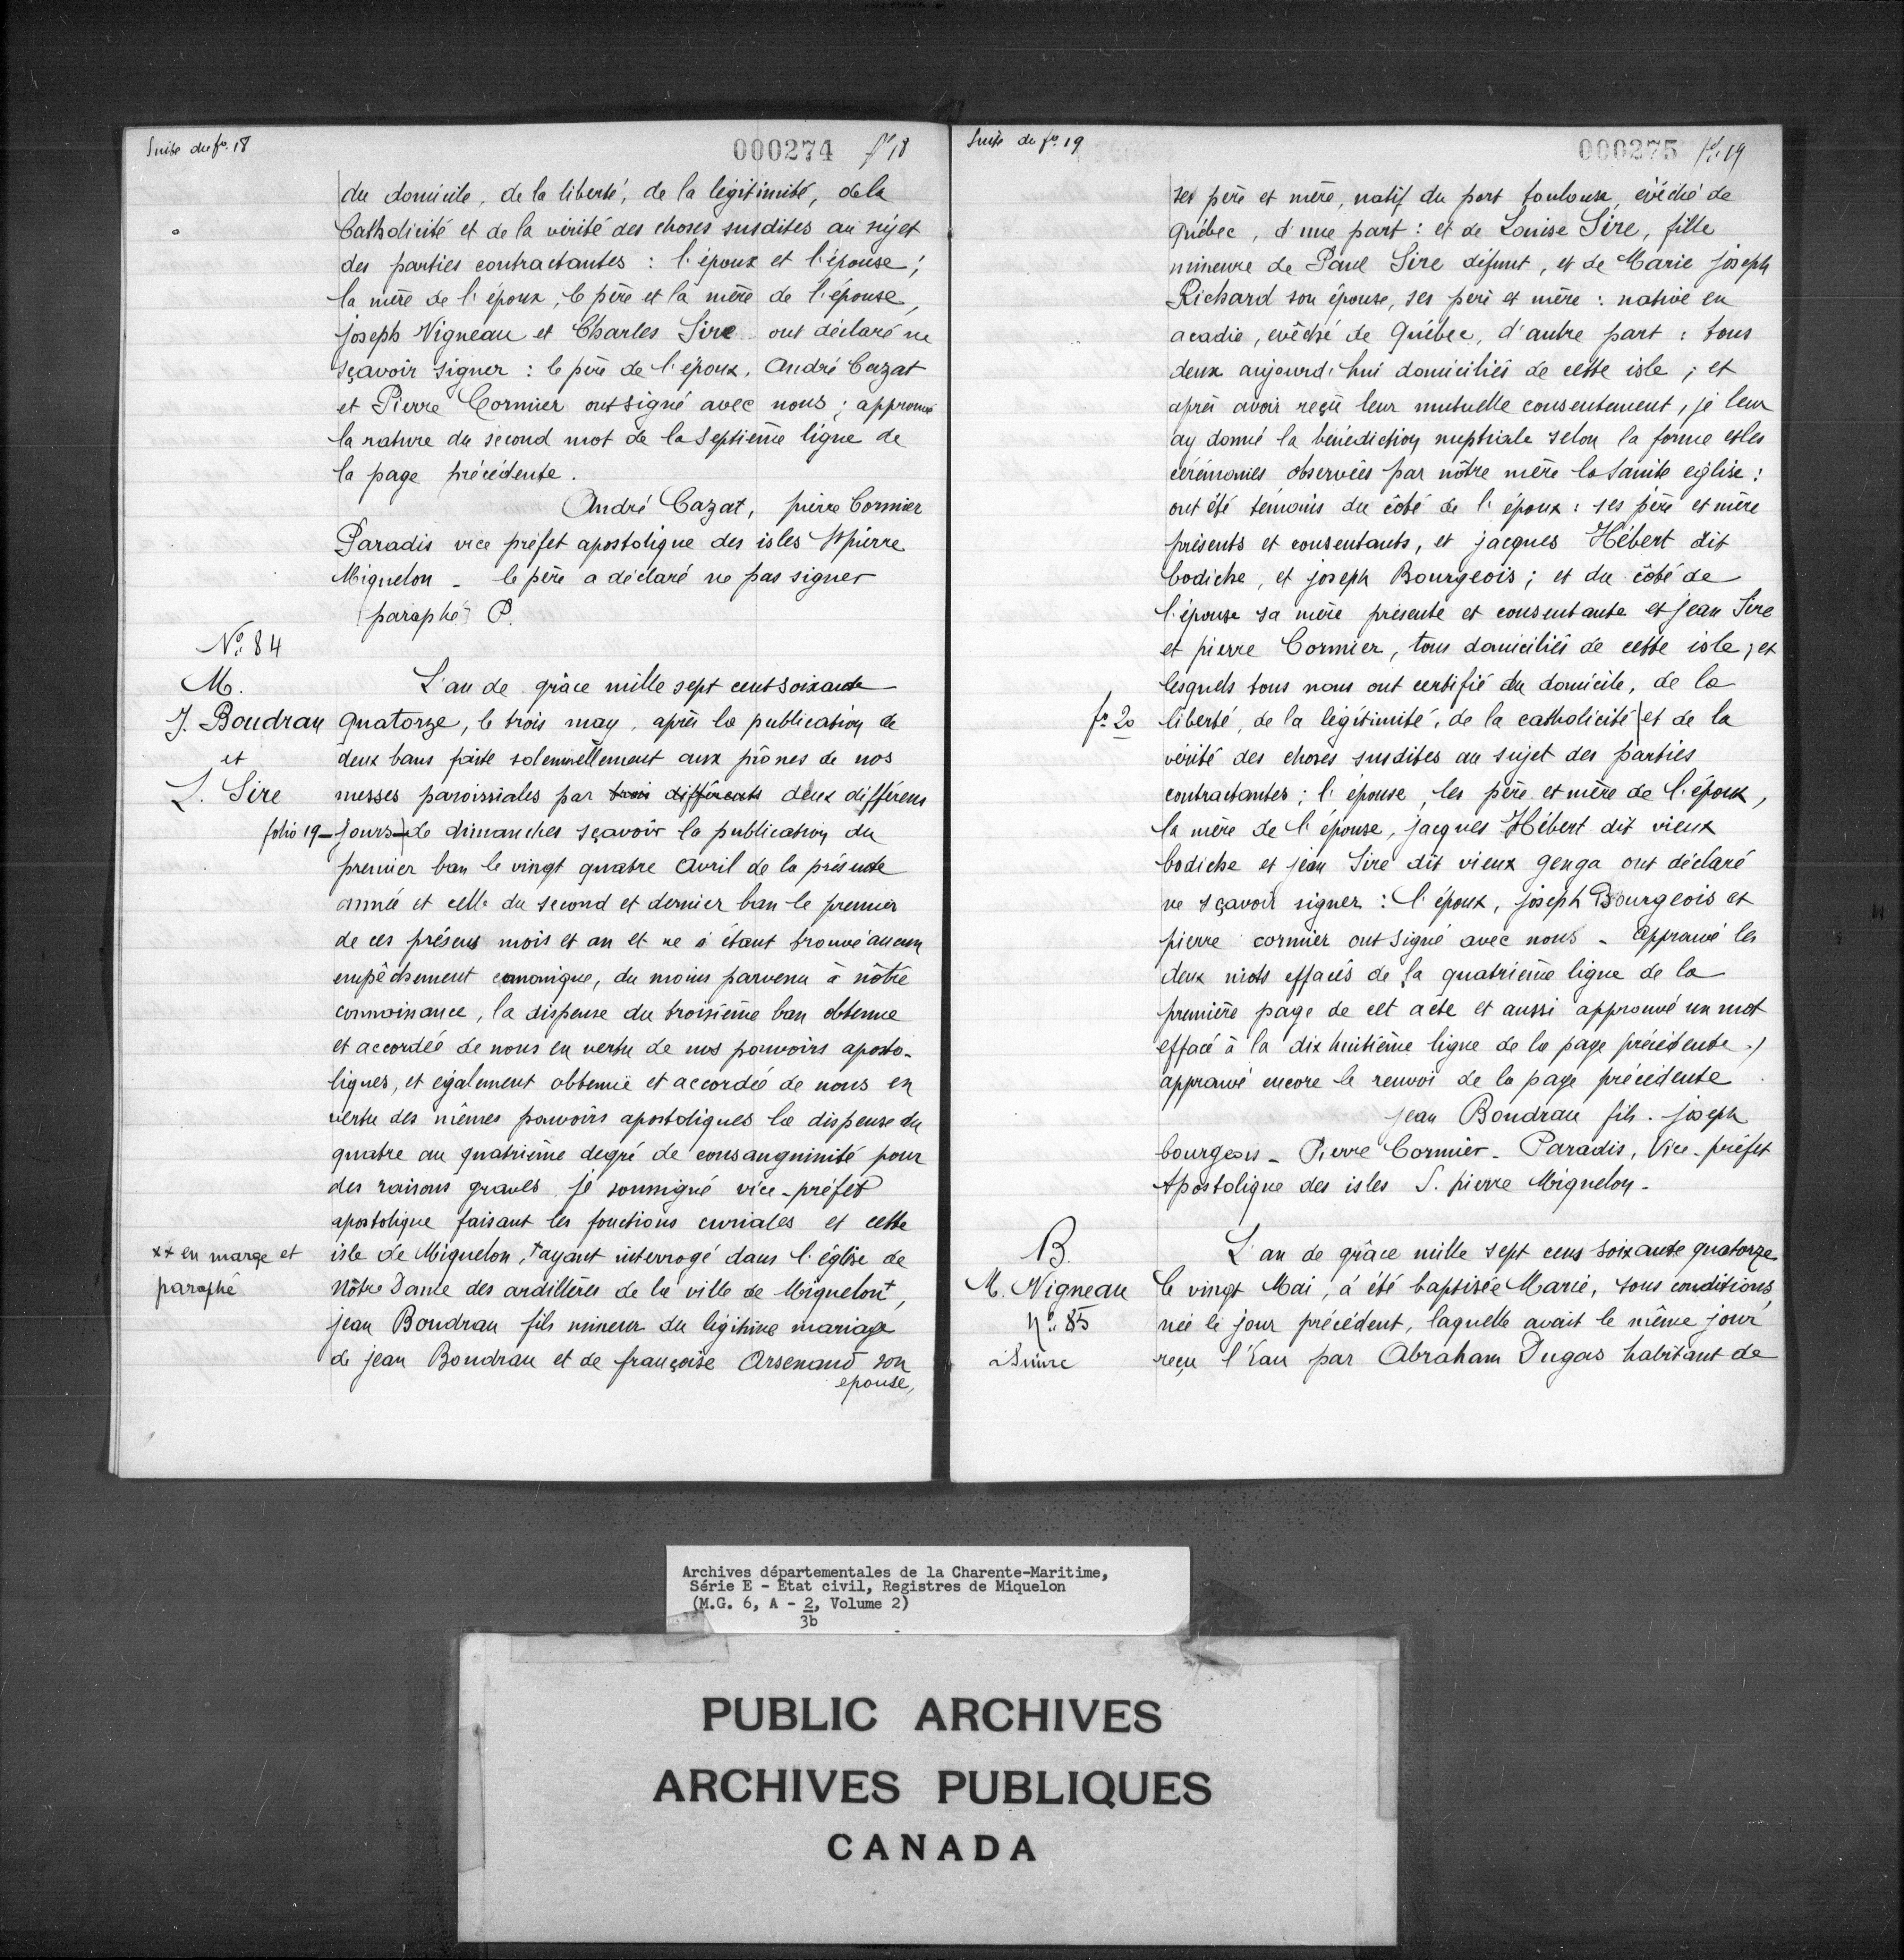 Suite du fo. 18
000274 fo 18
du domicile, de la liberté, de la légitimité, de la
Catholicité et de la vérité des choses susdites au sujet
des parties contractantes : l'époux et l'épouse ;
la mère de l'époux, le père et la mère de l'épouse,
joseph Vigneau et Charles Sire ont déclaré ne
sçavoir signer : le père de l'époux, André Cazat
et Pierre Cormier ont signé avec nous ; approuvé
la rature du second mot de la septième ligne de
la page précédente.
André Cazat, pierre Cormier
Paradis vice préfet apostolique des isles St pierre
Miquelon - le père a déclaré ne pas signer
(paraphé) P.
No. 84
M.
J. Boudrau
et
L. Sire
L'an de grâce mille sept cent soixante
quatorze, le trois may, après la publication de
deux bans faite solemnellement aux prônes de nos
messes paroissiales par trois différents deux différens
folio 19 - jours de dimanches sçavoir la publication du
premier ban le vingt quatre Avril de la présente
année et celle du second et dernier ban le premier
de ces présens mois et an et ne s'étant trouvé aucun
empêchement canonique, du moins parvenu à nôtre
connoissance, la dispense du troisième ban obtenue
et accordée de nous en vertu de nos pouvoirs aposto-
liques, et également obtenuë et accordée de nous en
vertu des mêmes pouvoirs apostoliques la dispense du
quatre au quatrième degré de consanguinité pour
des raisons graves je soussigné vice-préfet
apostolique faisant les fonctions curiales et cette
xx en marge et
paraphé
isle de Miquelon, +ayant interrogé dans l'église de
Nôtre Dame des ardillières de la ville de Miquelon+,
jean Boudrau fils mineur du légitime mariage
de jean Boudrau et de françoise Arsenaud son
epouse,
Suite du fo. 19
000275 fo. 19
ses père et mère, natif du port toulouse, evêché de
Québec, d'une part : et de Louise Sire, fille
mineure de Paul Sire défunt, et de Marie joseph
Richard son épouse, ses père et mère : native en
acadie, evêché de Québec, d'autre part : tous
deux aujourd'hui domiciliés de cette isle ; et
après avoir reçû leur mutuelle consentement, je leur
ay donné la bénédiction nuptiale selon la forme et les
cérémonies observées par nôtre mère la sainte eglise :
ont été témoins du côté de l'époux : ses père et mère
présents et consentants, et jacques Hébert dit
bodiche, et joseph Bourgeois ; et du côté de
l'épouse sa mère présente et consentante et jean Sire
et pierre Cormier, tous domiciliés de cette isle ; et
lesquels tous nous ont certifié du domicile, de la
fo 20
liberté, de la légitimité, de la catholicité | et de la
vérité des choses susdites au sujet des parties
contractantes ; l'épouse, les père et mère de l'époux,
la mère de l'épouse, jacques Hébert dit vieux
bodiche et jean Sire dit vieux genga ont déclaré
ne sçavoir signer : l'époux, joseph Bourgeois et
pierre cormier ont signé avec nous - approuvé les
deux mots effacés de la quatrième ligne de la
première page de cet acte et aussi approuvé un mot
effacé à la dix huitième ligne de la page précédente.)
approuvé encore le renvoi de la page précédente
jean Boudrau fils. joseph
bourgeois - Pierre Cormier - Paradis, Vice-préfet
Apostolique des isles S. pierre Miquelon -
B.
M. Vigneau
No. 85
à Suivre
L'an de grâce mille sept cens soixante quatorze
le vingt Mai, a été baptisée Marie, sous conditions,
née le jour précédent, laquelle avait le même jour
reçu l'Eau par Abraham Dugas habitant de
Archives départementales de la Charente-Maritime,
Série E - État civil, Registres de Miquelon
(M.G. 6, A - 2, Volume 2)
3b
PUBLIC ARCHIVES
ARCHIVES PUBLIQUES
CANADA